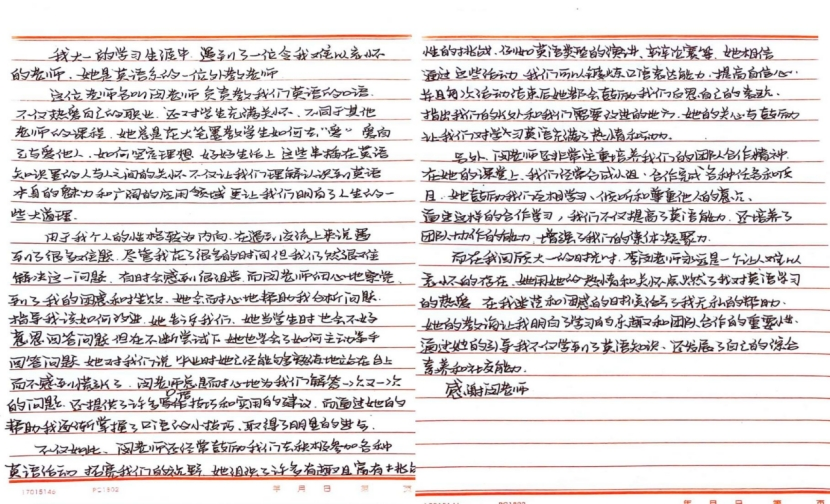 我大一的学习生活中，遇到了一位令我难以忘怀
的老师，她是英语系的一位外教老师
这位老师名叫闵老师负责教我们英语的口语.
不仅热爱自己的职业，还对学生充满关怀.不同于其他
老师的课程，她总是在大笔墨教学生如何去"爱"爱自
己与爱他人，如何坚定理想，好好生活上这些串插在英语
知识里的人与人之间的关怀不仅让我们理解认识到英语
本身的魅力和广阔的应用领域更让我们明白了人生的一
些大道理.
由于我个人的性格较为内向，在遇到交流上来说遇
到了很多难题，尽管我花了很多的时间但我们依然很难
解决这一问题，有时会感到很沮丧，而闵老师细心地察觉
到了我的困惑和时坐立，她会耐心地帮助我分析问题.
指导我该如何改进，她告诉我们，她当学生时也会不好
意思回答问题，但在不断尝试下她也学会了如何主动举手
回答问题，她对我们说，毕业时她已经能够熟练地站在台上
而不感到慌张了，闵老师总是耐心地为我们解答一次又一次
的问题，还提供了许多写作技巧和实用的建议，而通过她的
帮助我逐渐掌握了口语的小技巧，取得了明显的进步.
不仅如此，闵老师还经常鼓励我们去积极参加各种
英语活动，拓宽我们的视野，她组织了许多有趣且富有挑战
1701514o PG1502 年 月 日 第 页
性的挑战，例如英语类型的演讲、辩论比赛等，她相信
通过这些活动，我们可以锻炼口语表达能力，提高自信心.
并且每次活动结束后她都会鼓励我们反思自己的表现.
指出我们的收处和我们需要改进的地方，她的关心与鼓励
让我们对学习英语充满了热情和动力.
另外，闵老师还非常注重培养我们的团队合作精神.
在她的课堂上，我们经常合成小组，合作完成各种任务和项
目，她鼓励我们互相学习，倾听和尊重他人的意见.
通过这样的合作学习，我们不仅提高了英语能力，还培养了
团队协作的能力，增强了我们的集体凝聚力.
而在我回顾大一的时光时，李闵老师永远是一个让人难以
忘怀的存在，她用她的热情和关怀点燃了我对英语学习
的热爱，在我迷茫和困惑的时刻给了我无私的帮助.
她的教诲让我明白了学习的乐趣和团队合作的重要性.
通过她的引导我不仅学到了英语知识，还发展了自己的综合
素养和社交能力.
感谢闵老师
17015146 PG1502 年 月 日 第 页